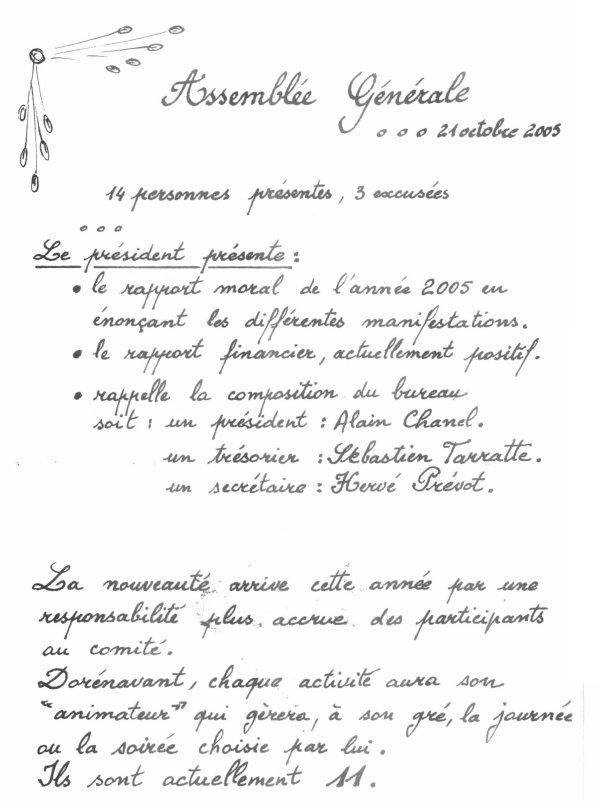 Assemblée Générale
21 octobre 2005
14 personnes présentes, 3 excusées
Le président présente :
• le rapport moral de l'année 2005 en
énonçant les différentes manifestations.
• le rapport financier, actuellement positif.
• rappelle la composition du bureau
soit : un président : Alain Chanel.
un trésorier : Sébastien Tarratte.
un secrétaire : Hervé Prévot.
La nouveauté arrive cette année par une
responsabilité plus accrue des participants
au comité.
Dorénavant, chaque activité aura son
"animateur" qui gèrera, à son gré, la journée
ou la soirée choisie par lui.
Ils sont actuellement 11.